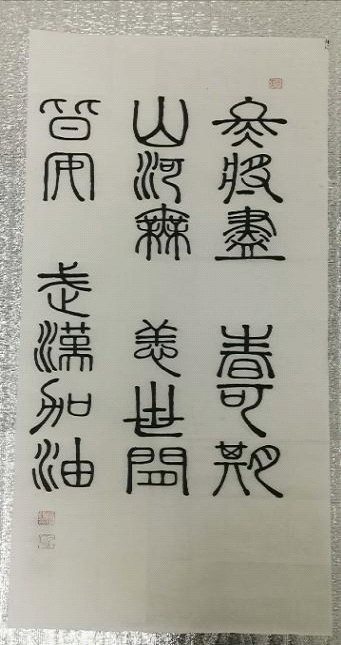 冬將盡 春可期
山河無 恙世間
皆安 武漢加油